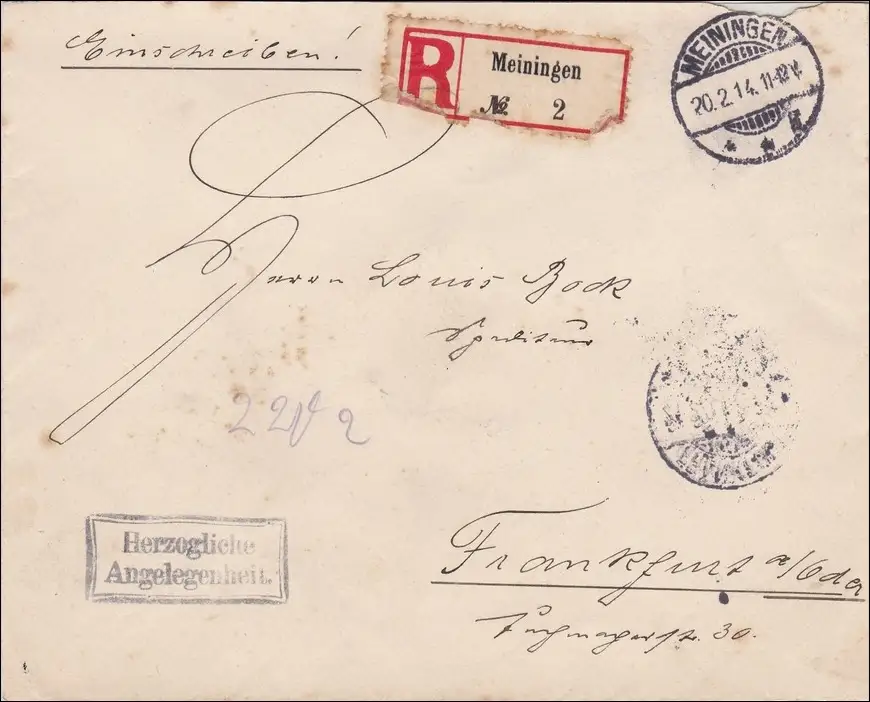 Einschreiben!
R Meiningen
№ 2
MEININGEN
20.2.14. 11-12V.
Herrn Louis Bock
Spediteur
Herzogliche
Angelegenheit.
Frankfurt a/Oder
Tuchmacherstr. 30.